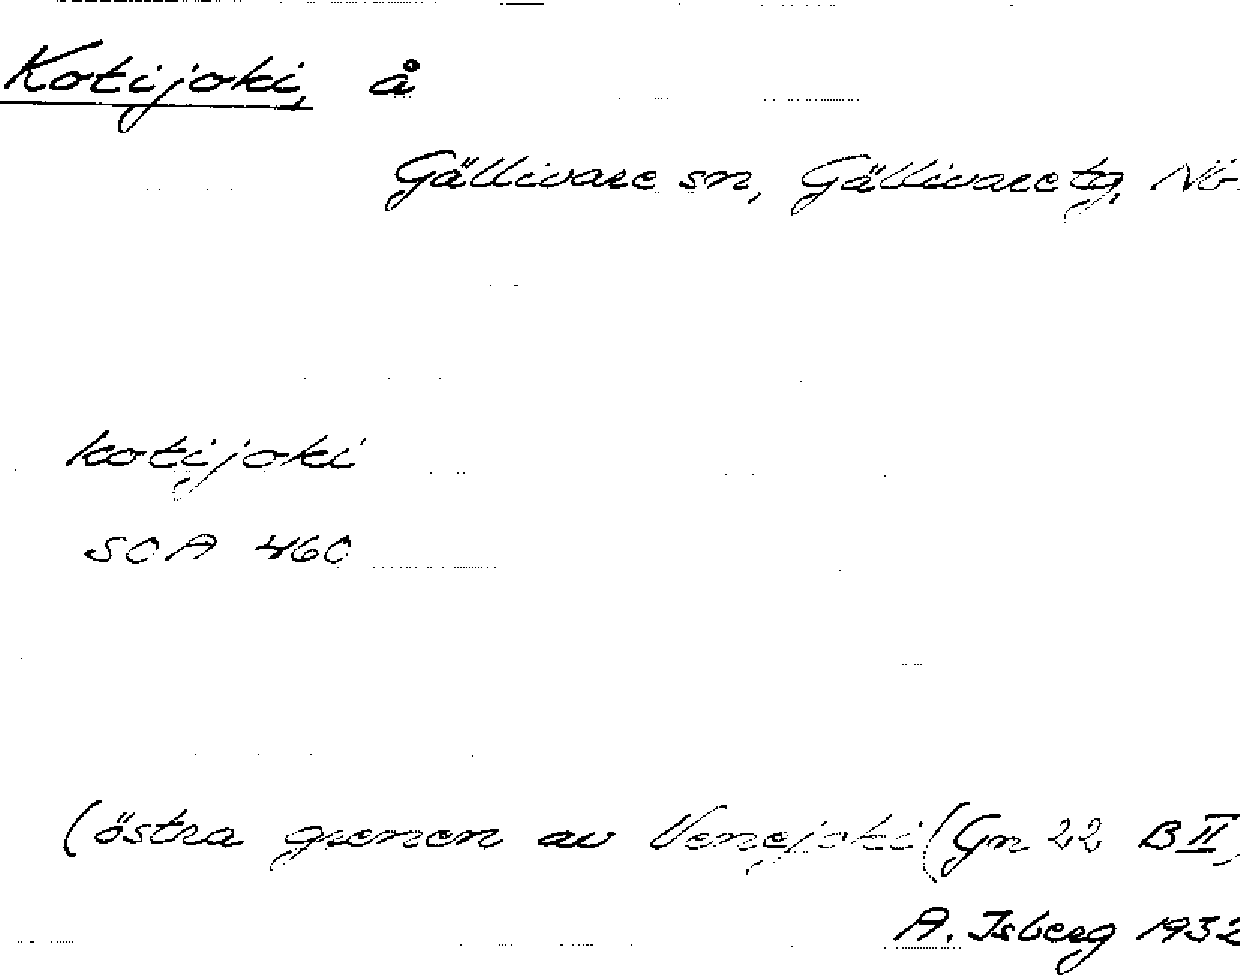 Kotijoki, å
Gällivare sn, Gällivare tg, Nb.
kotijoki
SOA 460
(östra grenen av Venejoki (Gn 22 B II)
A. Isberg 1932